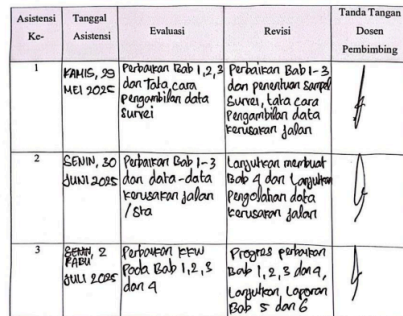 Asistensi Ke-
Tanggal Asistensi
Evaluasi
Revisi
Tanda Tangan Dosen Pembimbing
1
KAMIS, 29
MEI 2025
Perbaikan Bab 1,2,3
dan Tata cara
Pengambilan data
Survei
Perbaikan Bab 1-3
dan penentuan sampel
Survei, tata cara
Pengambilan data
kerusakan jalan
2
SENIN, 30
JUNI 2025
Perbaikan Bab 1-3
dan data-data
kerusakan jalan
/Sta
Lanjutkan membuat
Bab 4 dan Lanjutkan
Pengolahan data
kerusakan jalan
3
RABU, 2
JULI 2025
Perbaikan KKW
Pada Bab 1,2,3
dan 4
Progres perbaikan
Bab 1,2,3 dan 4,
Lanjutkan, Laporan
Bab 5 dan 6